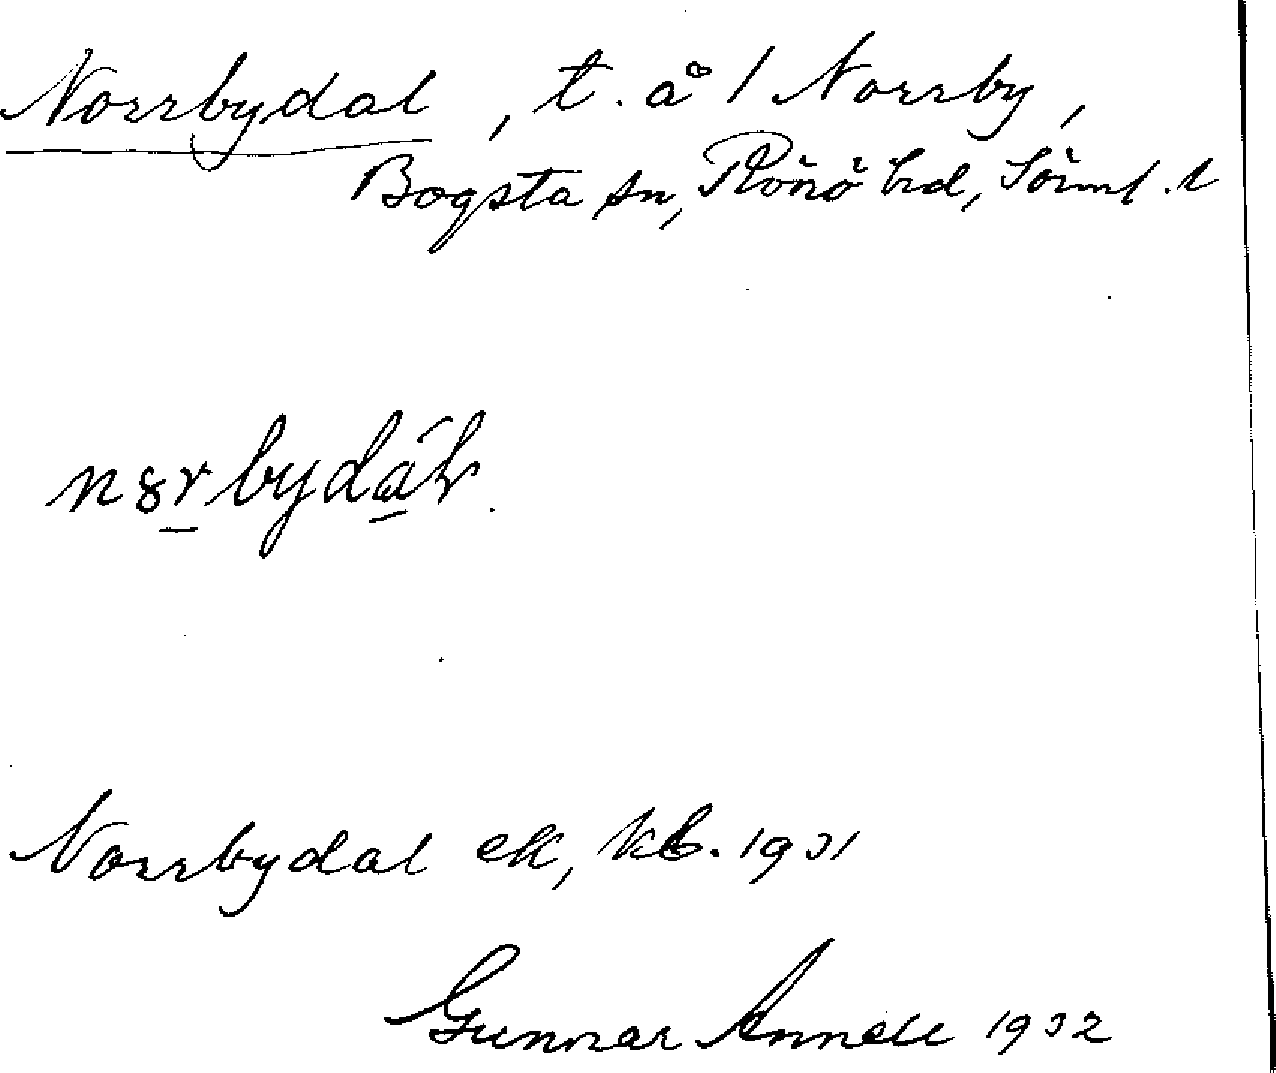 Norrbydal, t. å / Norrby,
Bogsta sn, Rönö hd, Sörml. l
Norrbydal ek, kb. 1931
Gunnar Annell 1932